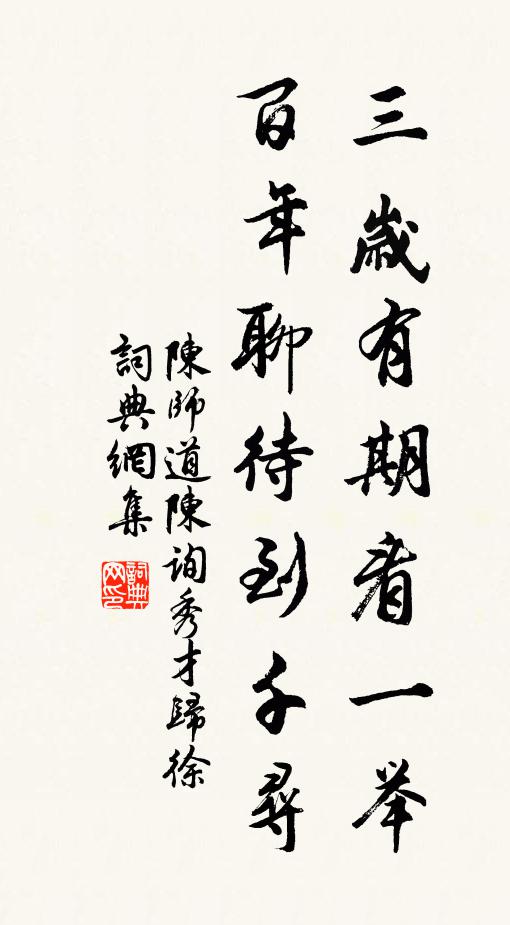 三歲有期看一举
百年聊待到千尋
陳師道陳詢秀才歸徐
詞典網集
詞典网印